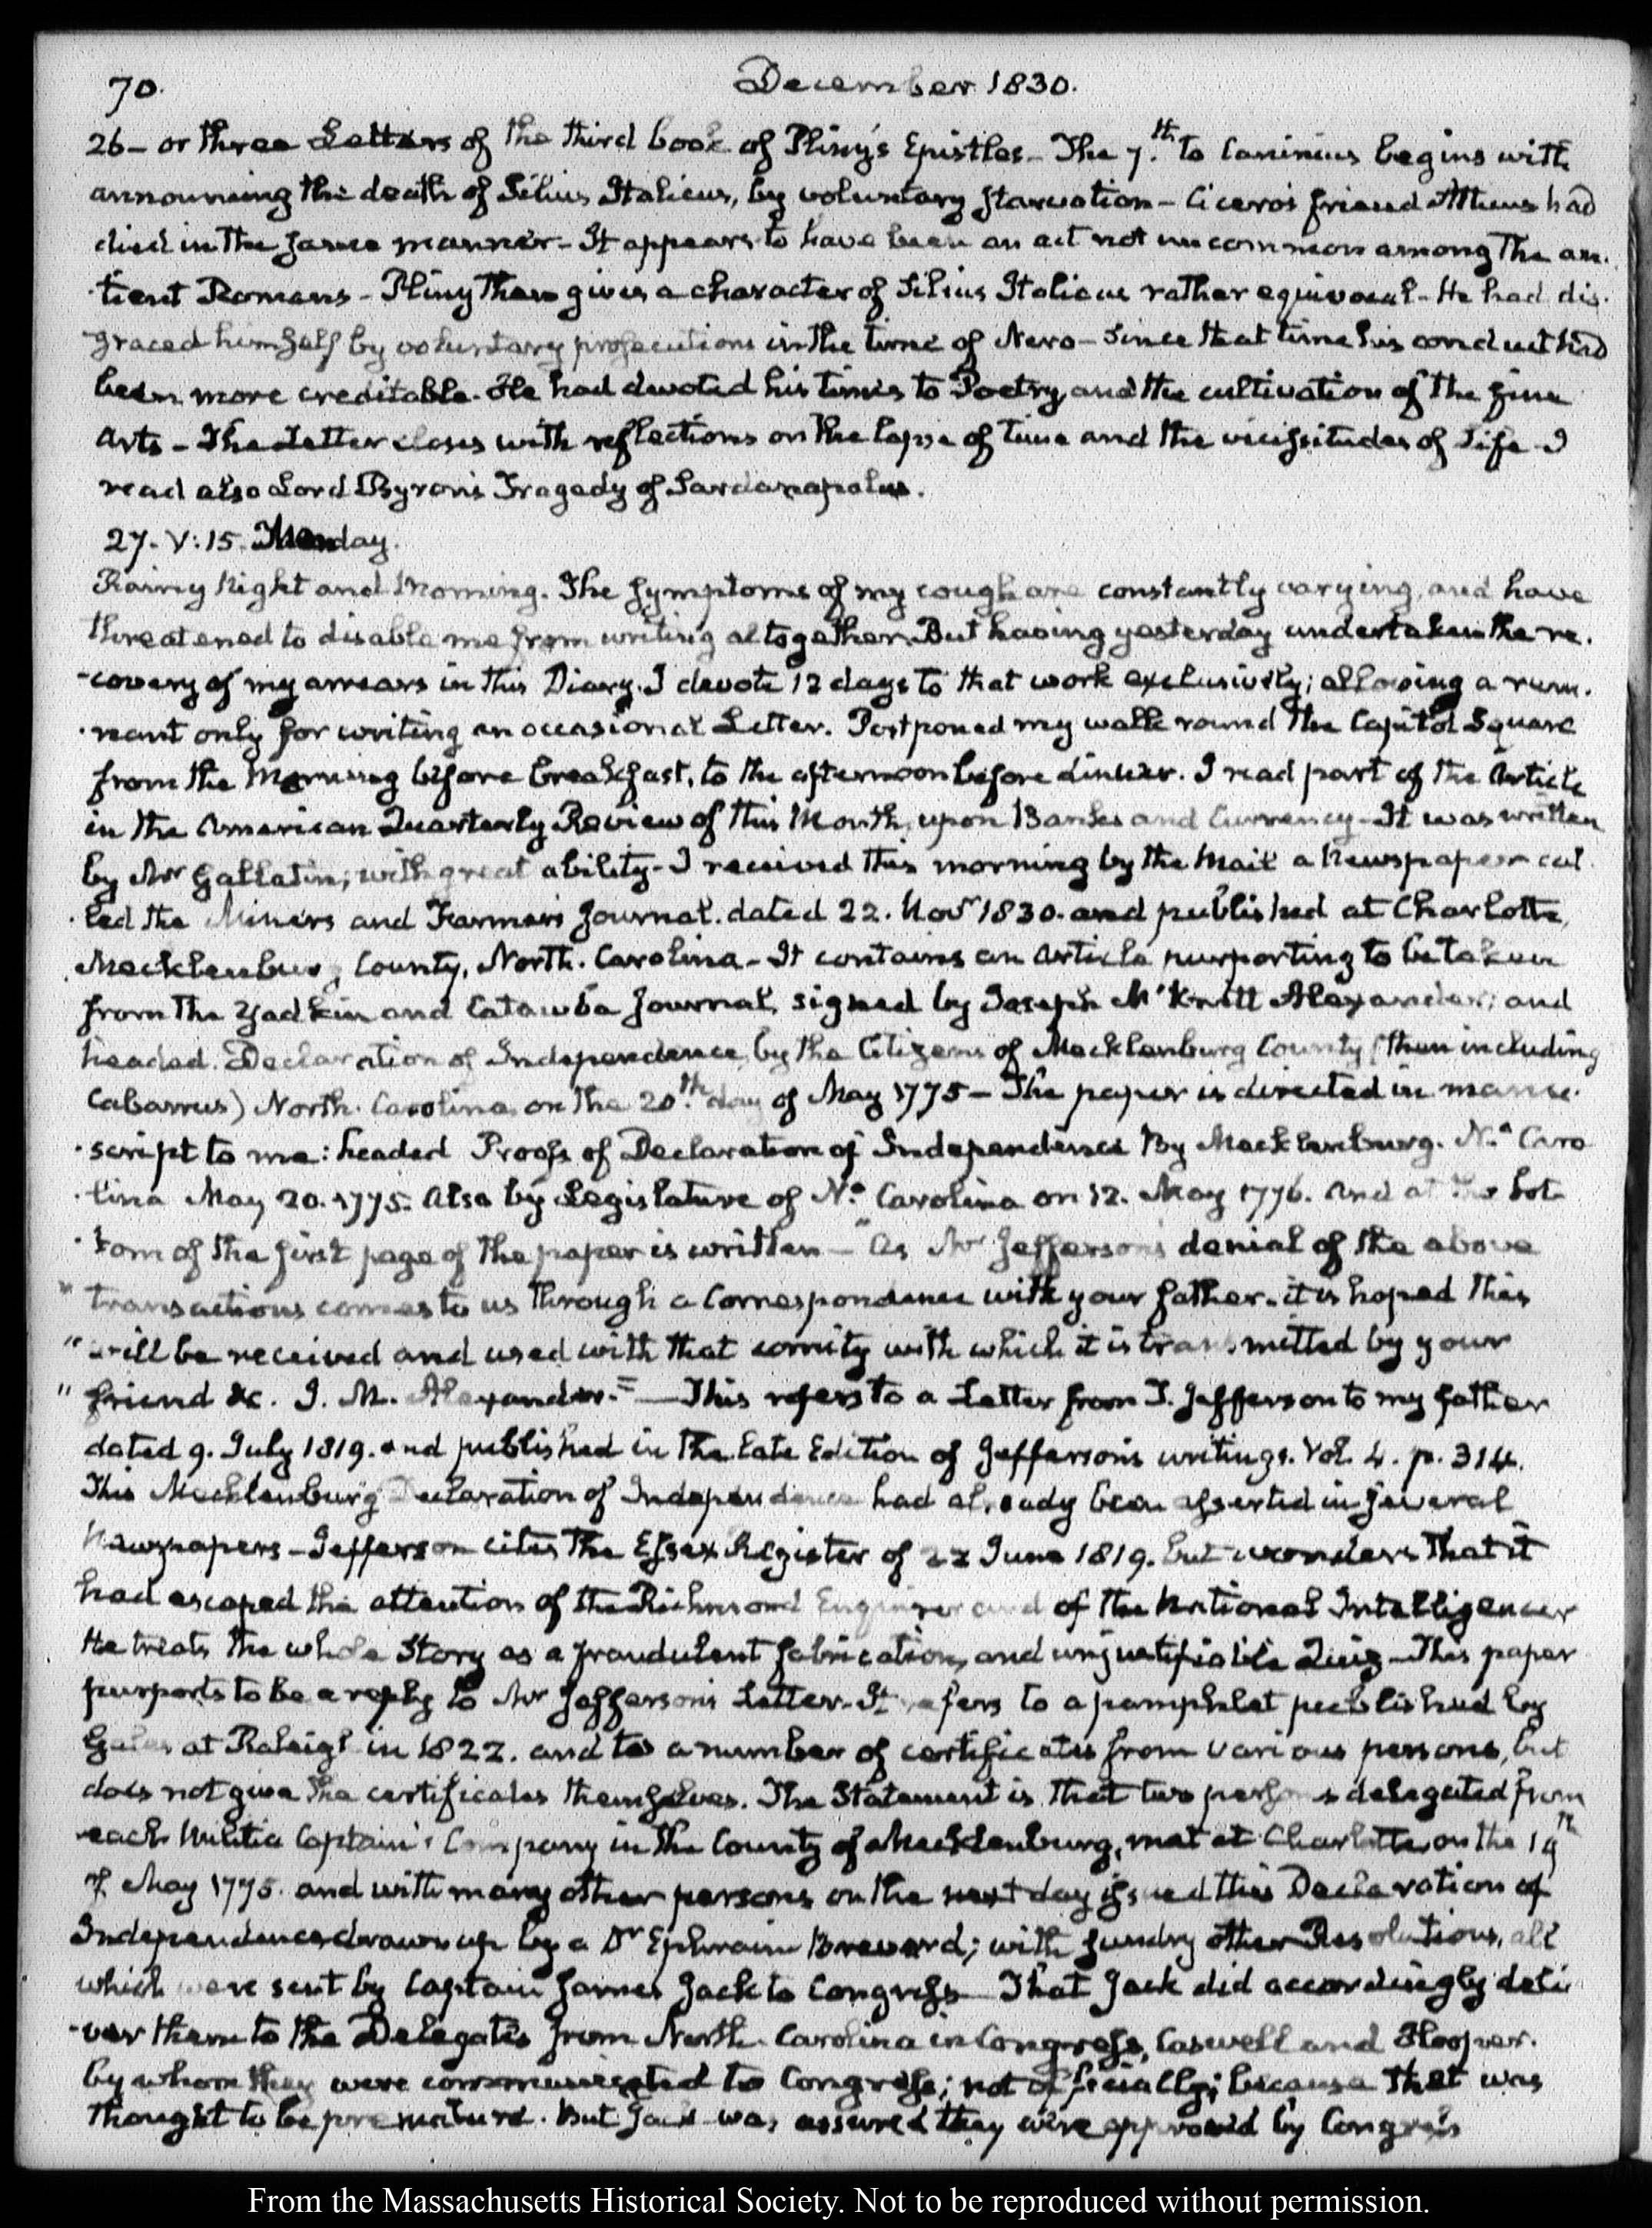 70. December 1830.
26 – or three Letters of the third book of Pliny's Epistles – The 7.th to Caninius begins with
announcing the death of Silius Italicus, by voluntary starvation – Cicero's friend Atticus had
died in the same manner – It appears to have been an act not uncommon among the an-
-tient Romans – Pliny then gives a character of Silius Italicus rather equivocal – He had dis-
-graced himself by voluntary prosecutions in the time of Nero – Since that time his conduct had
been more creditable. He had devoted his times to Poetry and the cultivation of the fine
Arts – The Letter closes with reflections on the lapse of time and the vicissitudes of Life – I
read also Lord Byron's Tragedy of Sardanapalus.
27. V:15. Monday.
Rainy Night and Morning. The symptoms of my cough are constantly varying, and have
threatened to disable me from writing altogether. But having yesterday undertaken the re-
-covery of my arrears in this Diary, I devote 12 days to that work exclusively; allowing a rem-
-nant only for writing an occasional Letter. Postponed my walk round the Capitol Square
from the Morning before breakfast, to the afternoon before dinner. I read part of the Article
in the American Quarterly Review of this Month, upon Banks and Currency – It was written
by Mr Gallatin; with great ability – I received this morning by the Mail a Newspaper cal-
-led the Miners and Farmers Journal. dated 22. Novr 1830. and published at Charlotte,
Mecklenburg County, North-Carolina – It contains an Article purporting to be taken
from the Yadkin and Catawba Journal, signed by Joseph McKnitt Alexander; and
headed. Declaration of Independence, by the Citizens of Mecklenburg County (then including
Cabarrus) North-Carolina on the 20.th day of May 1775 – The paper is directed in manu-
-script to me: headed Proofs of Declaration of Independence By Mecklenburg. No Caro
-lina May 20. 1775. Also by Legislature of No Carolina on 12. May 1776. And at the bot-
-tom of the first page of the paper is written – "As Mr Jefferson's denial of the above
"transactions comes to us through a Correspondence with your father – it is hoped this
"will be received and used with that comity with which it is transmitted by your
"friend &c. J. M. Alexander." — This refers to a Letter from T. Jefferson to my father
dated 9. July 1819. and published in the late Edition of Jefferson's writings. Vol. 4. p. 314.
This Mecklenburg Declaration of Independence had already been asserted in several
Newspapers – Jefferson cites the Essex Register of 22 June 1819. but wonders that it
had escaped the attention of the Richmond Enquirer and of the National Intelligencer
He treats the whole Story as a fraudulent fabrication, and unjustifiable Quiz – This paper
purports to be a reply to Mr Jefferson's Letter – It refers to a pamphlet published by
Gales at Raleigh in 1822. and to a number of certificates from various persons, but
does not give the certificates themselves. The Statement is that two persons delegated from
each Militia Captain's Company in the County of Mecklenburg, met at Charlotte on the 19th
of May 1775. and with many other persons on the next day issued this Declaration of
Independence drawn up by a Dr Ephraim Brevard; with sundry other Resolutions, all
which were sent by Captain James Jack to Congress – That Jack did accordingly deli-
-ver them to the Delegates from North-Carolina in Congress, Caswell and Hooper.
by whom they were communicated to Congress; not officially; because that was
thought to be premature. But Jack was assured they were approved by Congress
From the Massachusetts Historical Society. Not to be reproduced without permission.